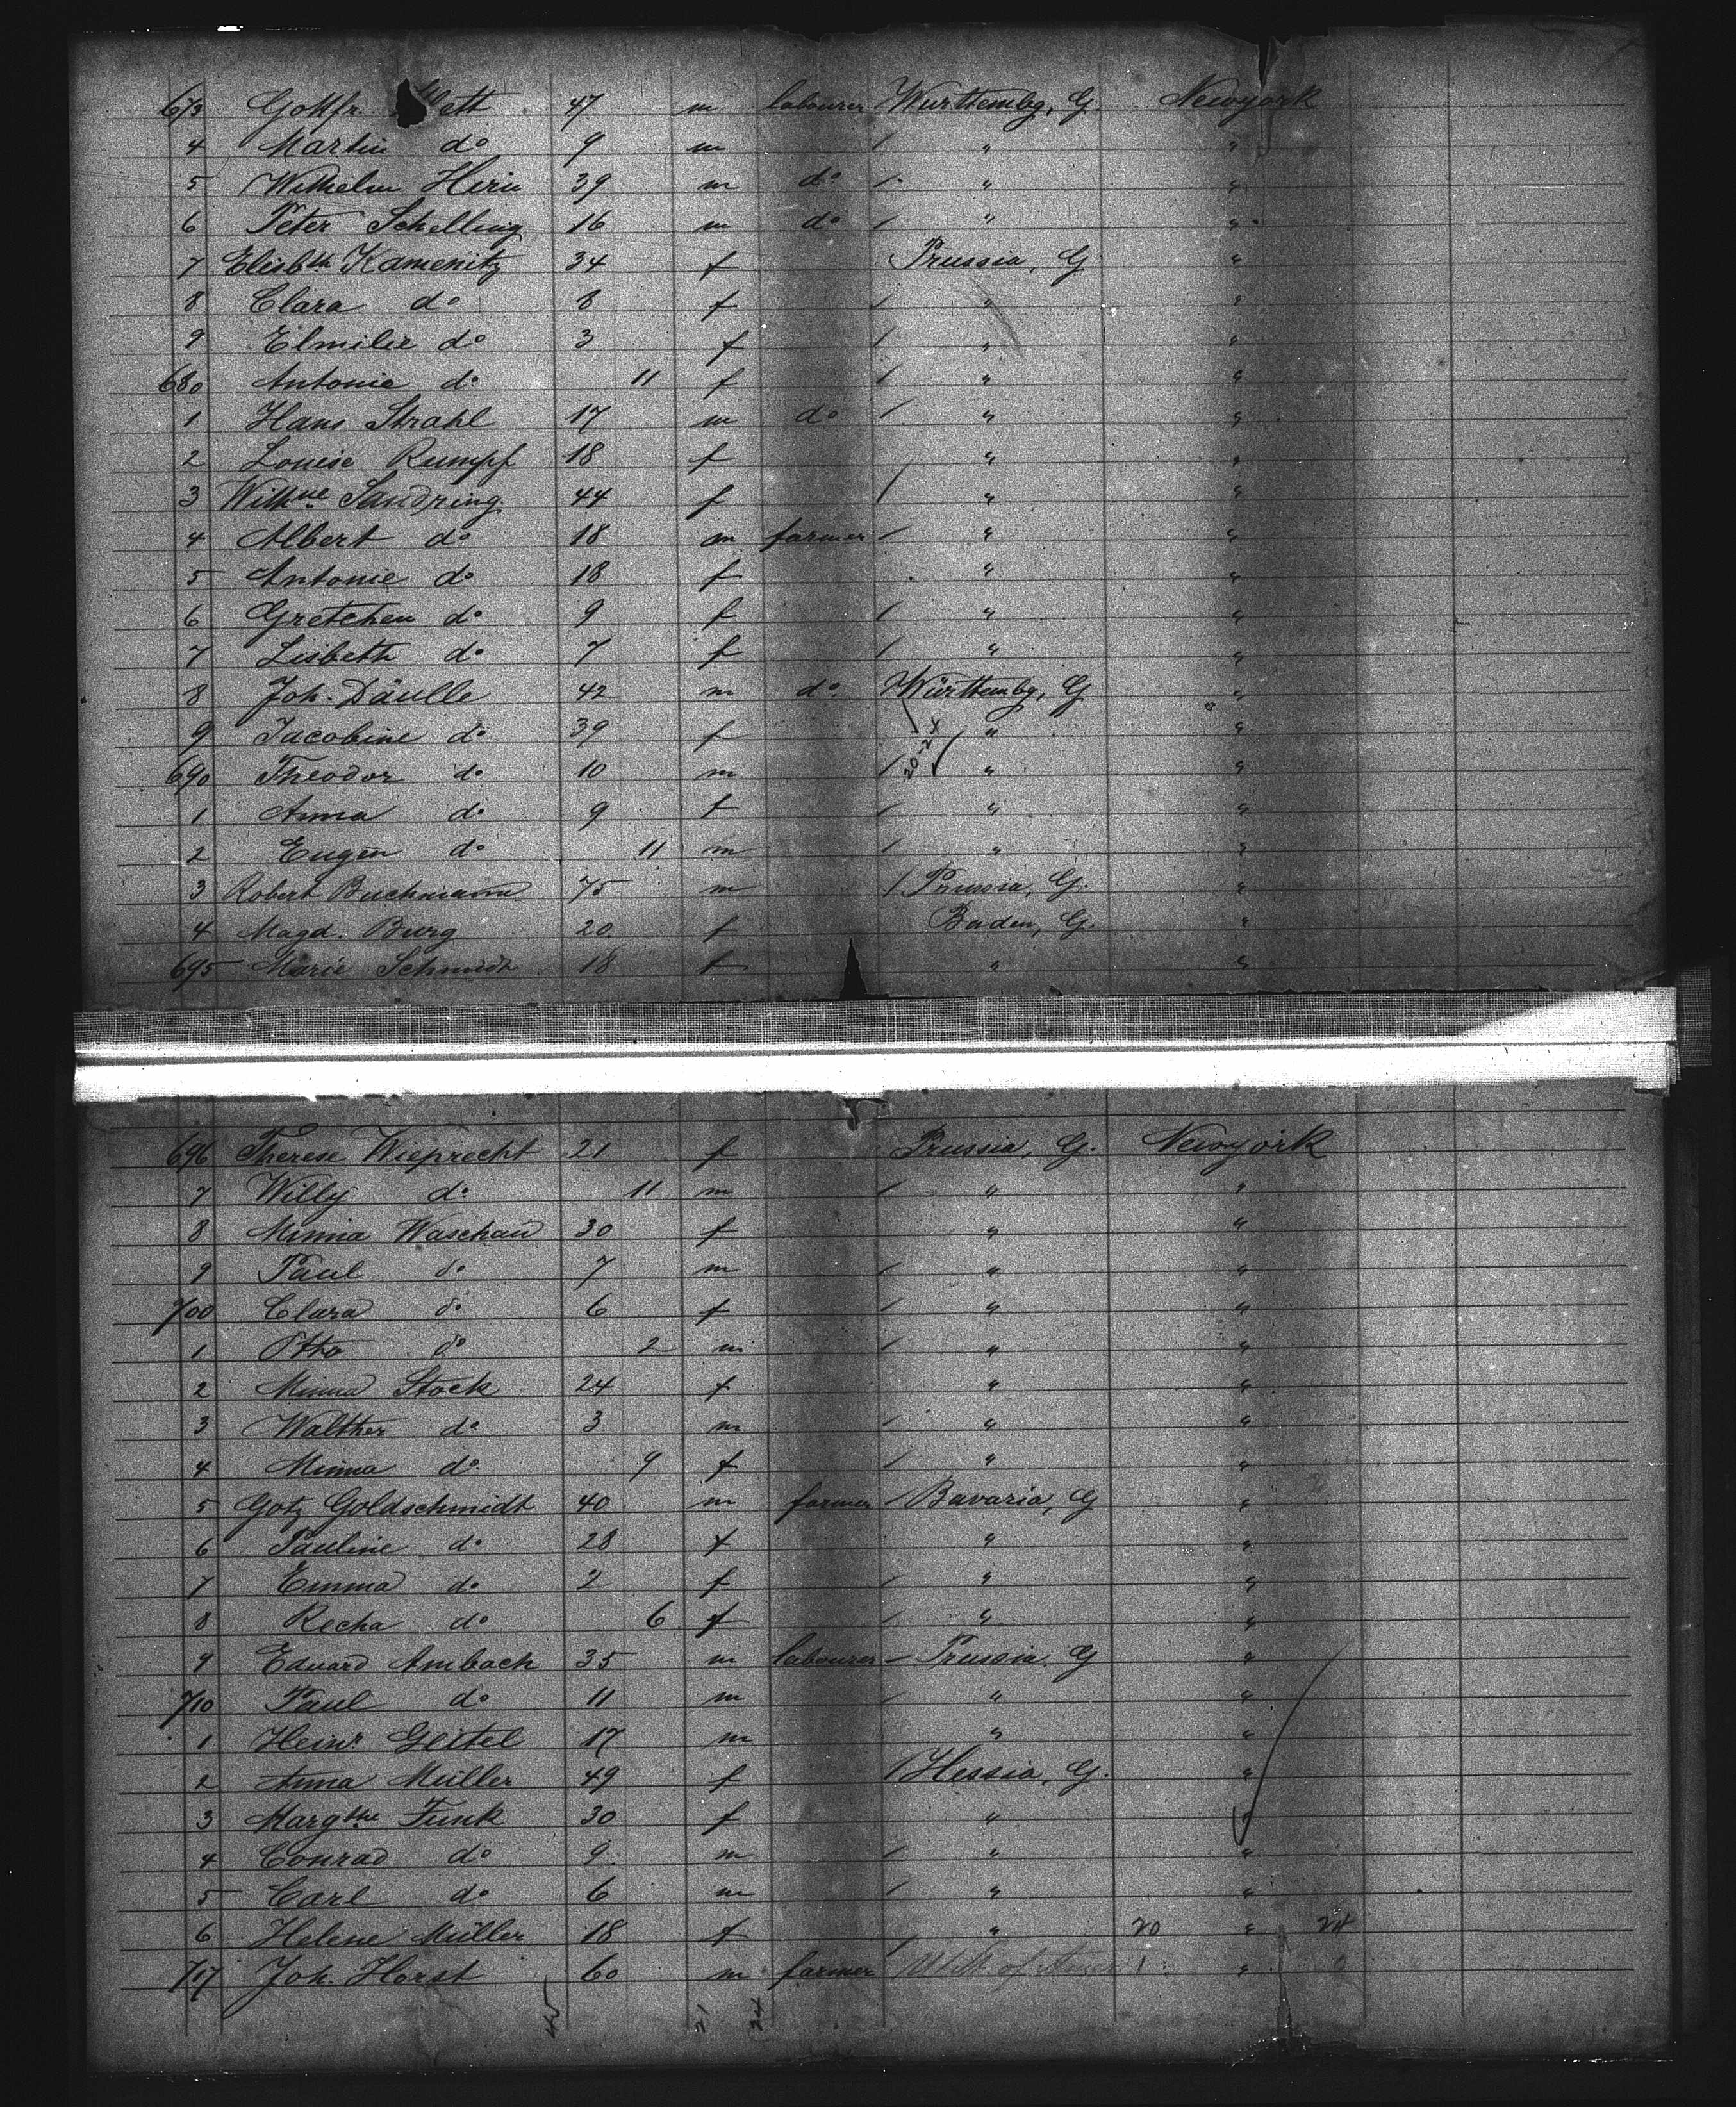 673 Gottfr. 47 m labourer Württembg, G. Newyork
4 Martin do 9 m " "
5 Wilhelm Hirn 39 m do " "
6 Peter Schelling 16 m do " "
7 Elisbth Kamenitz 34 f Prussia, G "
8 Clara do 8 f " "
9 Elmilie do 3 f " "
680 Antonie do 11 f " "
1 Hans Strahl 17 m do " "
2 Louise Rumpf 18 f " "
3 Wilhne Sandring 44 f " "
4 Albert do 18 m farmer " "
5 Antonie do 18 f " "
6 Gretchen do 9 f " "
7 Lisbeth do 7 f " "
8 Joh. Däulle 42 m do Württembg, G "
9 Jacobine do 39 f " "
690 Theodor do 10 m " "
1 Anna do 9 f " "
2 Eugen do 11 m " "
3 Robert Buchmann 75 m Prussia, G. "
4 Magd. Burg 20 f Baden, G. "
695 Marie Schmidt 18 f " "
696 Therese Wieprecht 21 f Prussia, G. Newyork
7 Willy do 11 m " "
8 Minna Waschau 30 f " "
9 Paul do 7 m " "
700 Clara do 6 f " "
1 Otto do 2 m " "
2 Minna Stock 24 f " "
3 Walther do 3 m " "
4 Minna do 9 f " "
5 Gotz Goldschmidt 40 m farmer Bavaria, G "
6 Pauline do 28 f " "
7 Emma do 2 f " "
8 Recha do 6 f " "
9 Eduard Ambach 35 m labourer Prussia, G "
710 Paul do 11 m " "
1 Heinr. Geitel 17 m " "
2 Anna Müller 49 f Hessia, G. "
3 Margthe Funk 30 f " "
4 Conrad do 9 m " "
5 Carl do 6 m " "
6 Helene Müller 18 f " 20 " 24
717 Joh. Horst 60 m farmer "
21 24